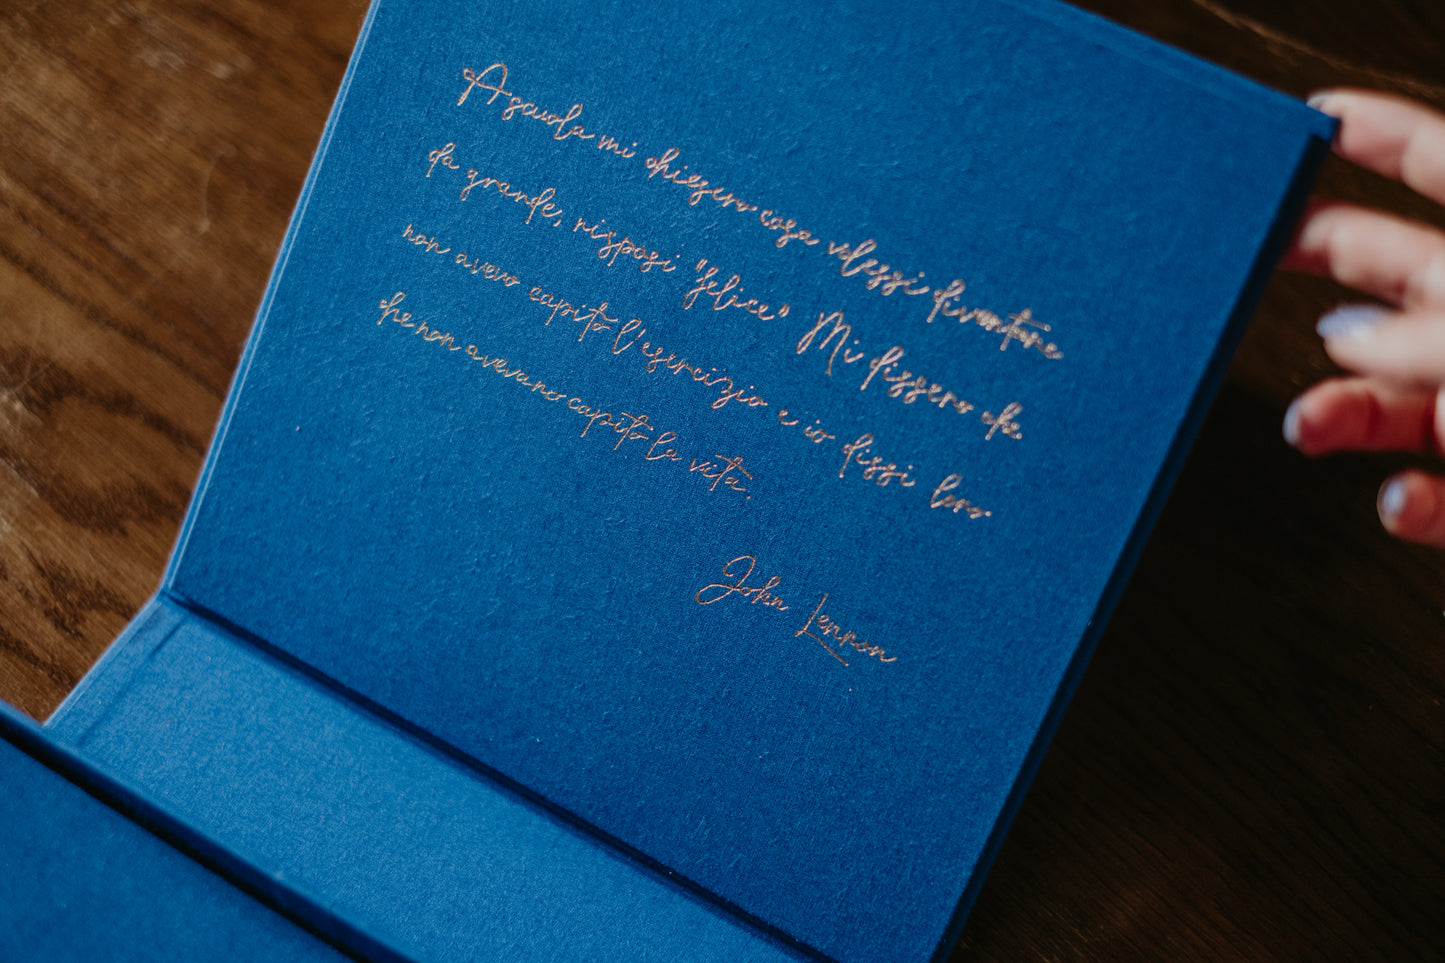 A scuola mi chiesero cosa volessi diventare
da grande, risposi "felice" Mi dissero che
non avevo capito l'esercizio e io dissi loro
che non avevano capito la vita.
John Lennon